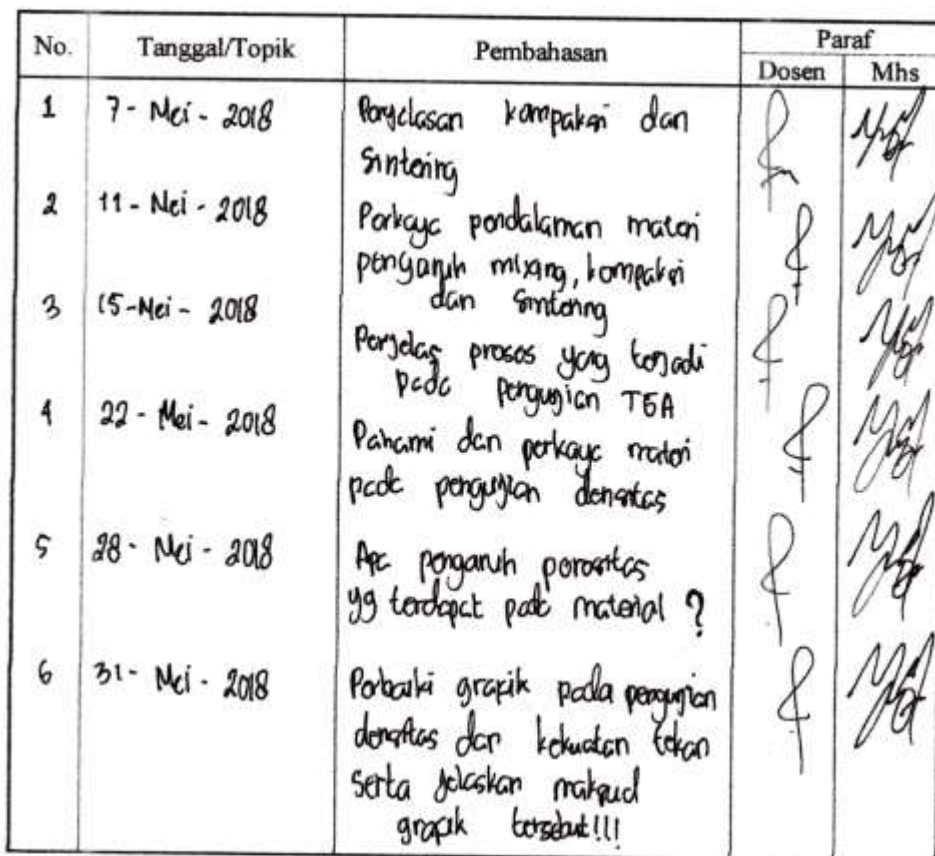 No. Tanggal/Topik Pembahasan Paraf
Dosen Mhs
1 7 - Mei - 2018 Penjelasan kompaksi dan
Sintering
2 11 - Mei - 2018 Perkaya pendalaman materi
pengaruh mixing, kompaksi
dan Sintering
3 15 - Mei - 2018 Perjelas proses yang terjadi
pada pengujian TGA
4 22 - Mei - 2018 Pahami dan perkaya materi
pada pengujian densitas
5 28 - Mei - 2018 Apa pengaruh porositas
yg terdapat pada material ?
6 31 - Mei - 2018 Perbaiki grafik pada pengujian
densitas dan kekuatan tekan
serta jelaskan maksud
grafik tersebut!!!